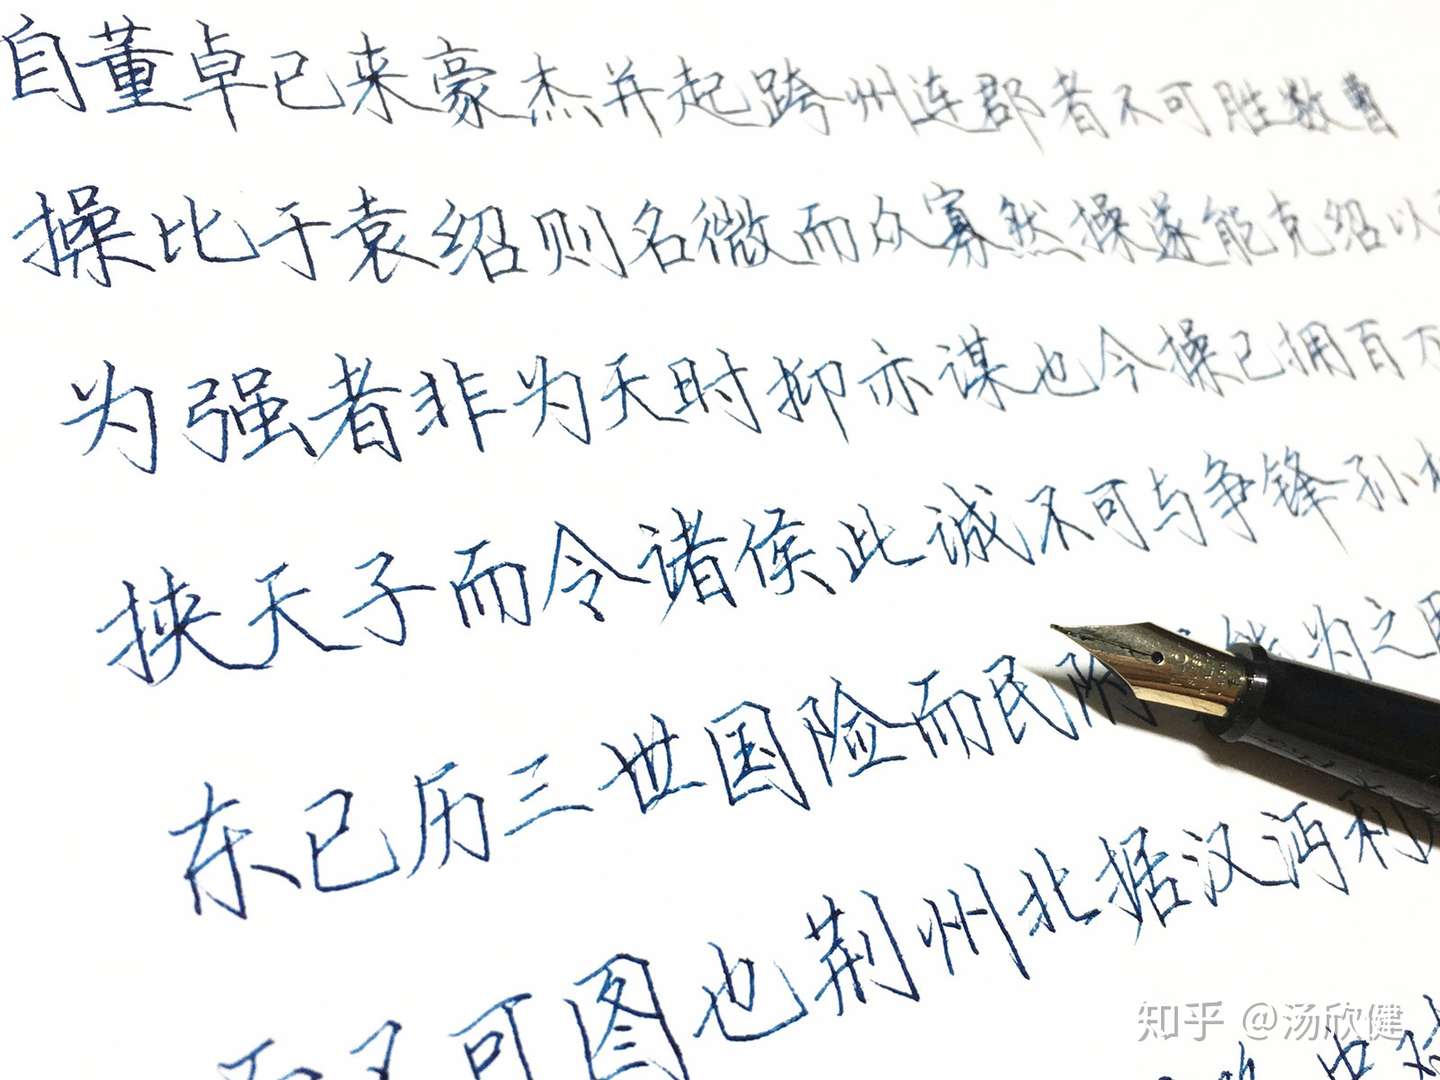 自董卓已来豪杰并起跨州连郡者不可胜数曹
操比于袁绍则名微而众寡然操遂能克绍以
为强者非为天时抑亦谋也今操已拥百万
挟天子而令诸侯此诚不可与争锋孙
东已历三世国险而民附 为之
不可图也荆州北据汉沔利
知乎 @汤欣健